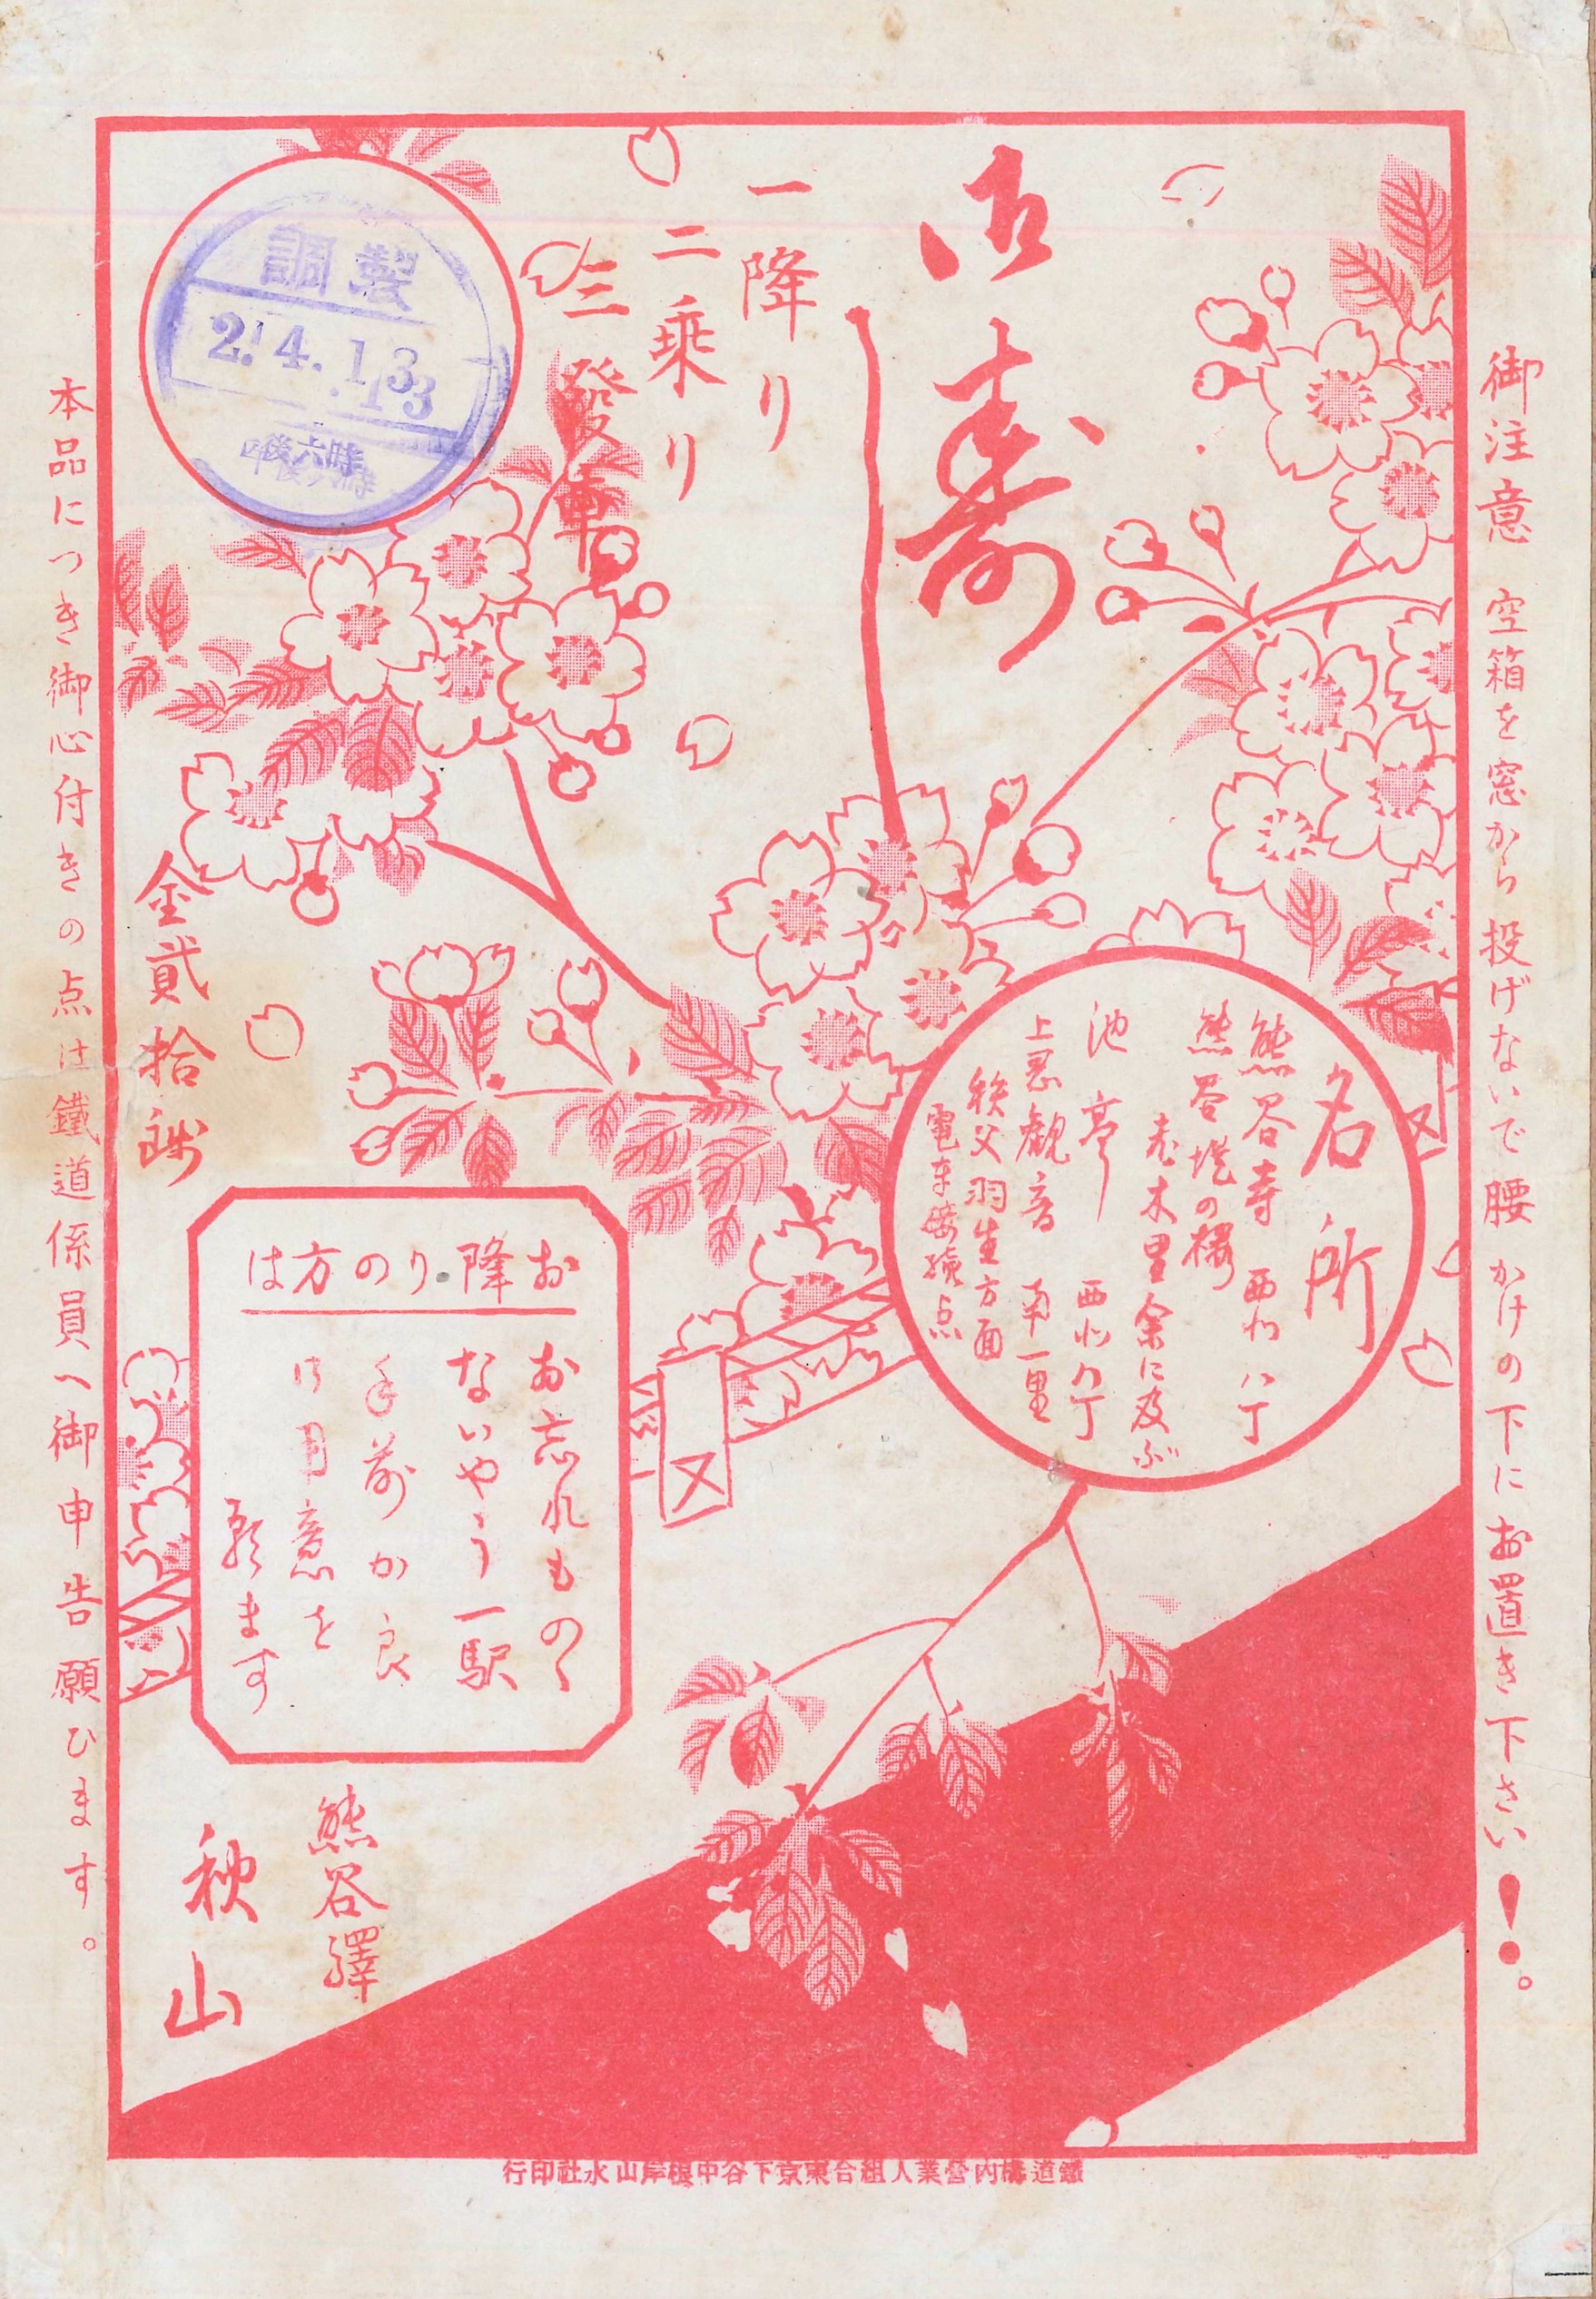 御注意 空箱を窓から投げないで腰かけの下にお置き下さい!。
御寿し
一降り
二乗り
三發車
調製
2.4.13
午後六時
名所
熊谷寺 西北八丁
熊谷堤の櫻
荒木里余に及ぶ
池亭 西北八丁
上之観音 南一里
秩父羽生方面
電車接続点
金貳拾錢
お降りの方は
お忘れものゝ
ないやう一駅
手前から
御用意を
願ます
熊谷驛
秋山
本品につき御心付きの点は鐵道係員へ御申告願ひます。
鐵道構内營業人組合東京下谷中根岸山水社印行